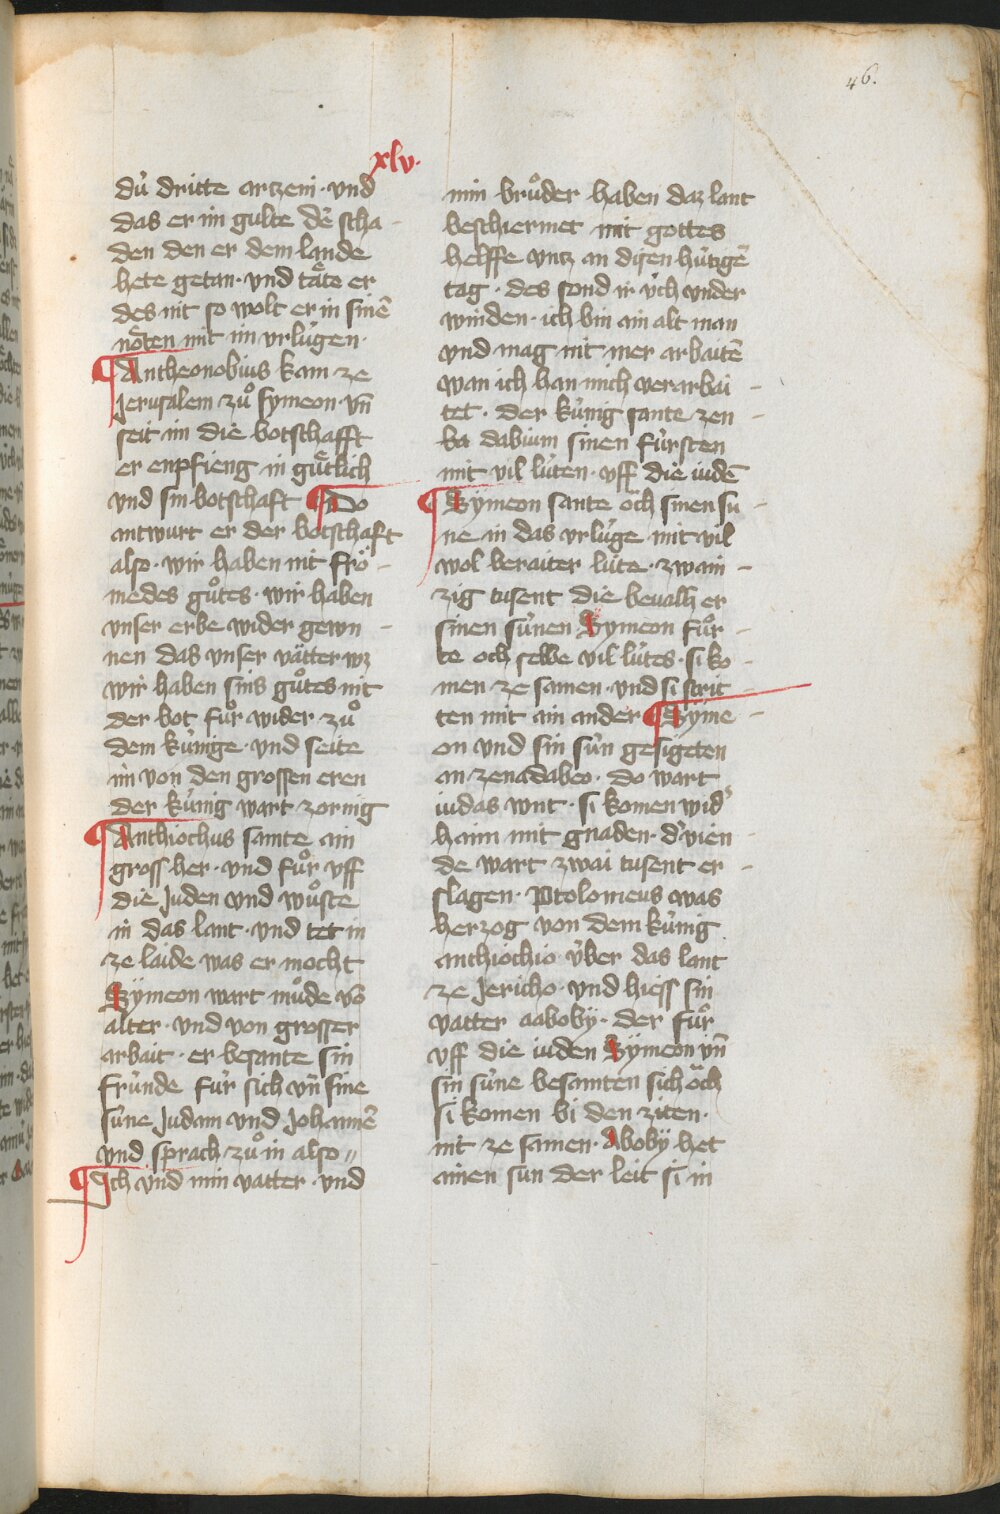 46.
xlv.
dú dritte artzeni · vnd
das er im gulte dē scha-
den den er dem lande
hete getan · vnd taͤte er
des nit so wolt er in sinē
noͤten mit im vrlúgen ·
¶ Antheonobius kam ze
Jerusalem zuͦ symeon · vn̄
seit im die botschafft
er enpfieng in guͤtlich
vnd sin botschaft ¶ Do
antwurt er der botschaft
also · wir haben nit froͤ-
medes guͦtes · wir haben
vnser erbe wider gewn-
nen das vnser vätter wz
wir haben sins guͦtes nit
der bot fuͦr wider zuͦ
dem kúnige · vnd seite
im von den grossen eren
der kúnig wart zornig
¶ Anthiochus sante ain
gross her · vnd fuͦr vff
die Juden vnd wuͦste
in das lant · vnd tet in
ze laide was er mocht
Sÿmeon wart muͤde vō
alter · vnd von grosser
arbait · er besante sin
frúnde fúr sich vn̄ sine
súne Judam vnd Johannē
vnd sprach zuͦ in also //
¶ Ich vnd min vatter · vnd
min bruͦder haben daz lant
beschiermet mit gottes
helffe vntz an disen hútigē
tag · des sond ir v́ch vnder
winden · ich bin ain alt man
vnd mag nit mer arbaitē
wan ich han mich verarbai-
tet · der kúnig sante zen-
ba dabium sinen fúrsten
mit vil lúten · vff die iudē
¶ Sÿmeon sante oͮch sinen su-
ne in das vrlúge mit vil
wol beraiter lúte · zwain-
zig tusent die bevalh er
sinen súnen Sÿmeon fuͦr-
te och selbe vil lútes · si ko-
men ze samen · vnd si strit-
ten mit ain ander ¶ Sÿme-
on vnd sin sún gesigeten
an zenadabeo · do wart
iudas wnt · si komen wid'
haim mit gnaden · d' vien-
de wart zwai tusent er-
slagen · Ptolomeus was
herzog von dem kúnig
anthiochio · v́ber das lant
ze Jericho · vnd hiess sin
vatter aabobÿ · der fuͦr
vff die iuden Sÿmeon vn̄
sin súne besamten sich oͮch
si komen bi den ziten ·
nit ze samen · Abobÿ het
ainen sun der leit si in